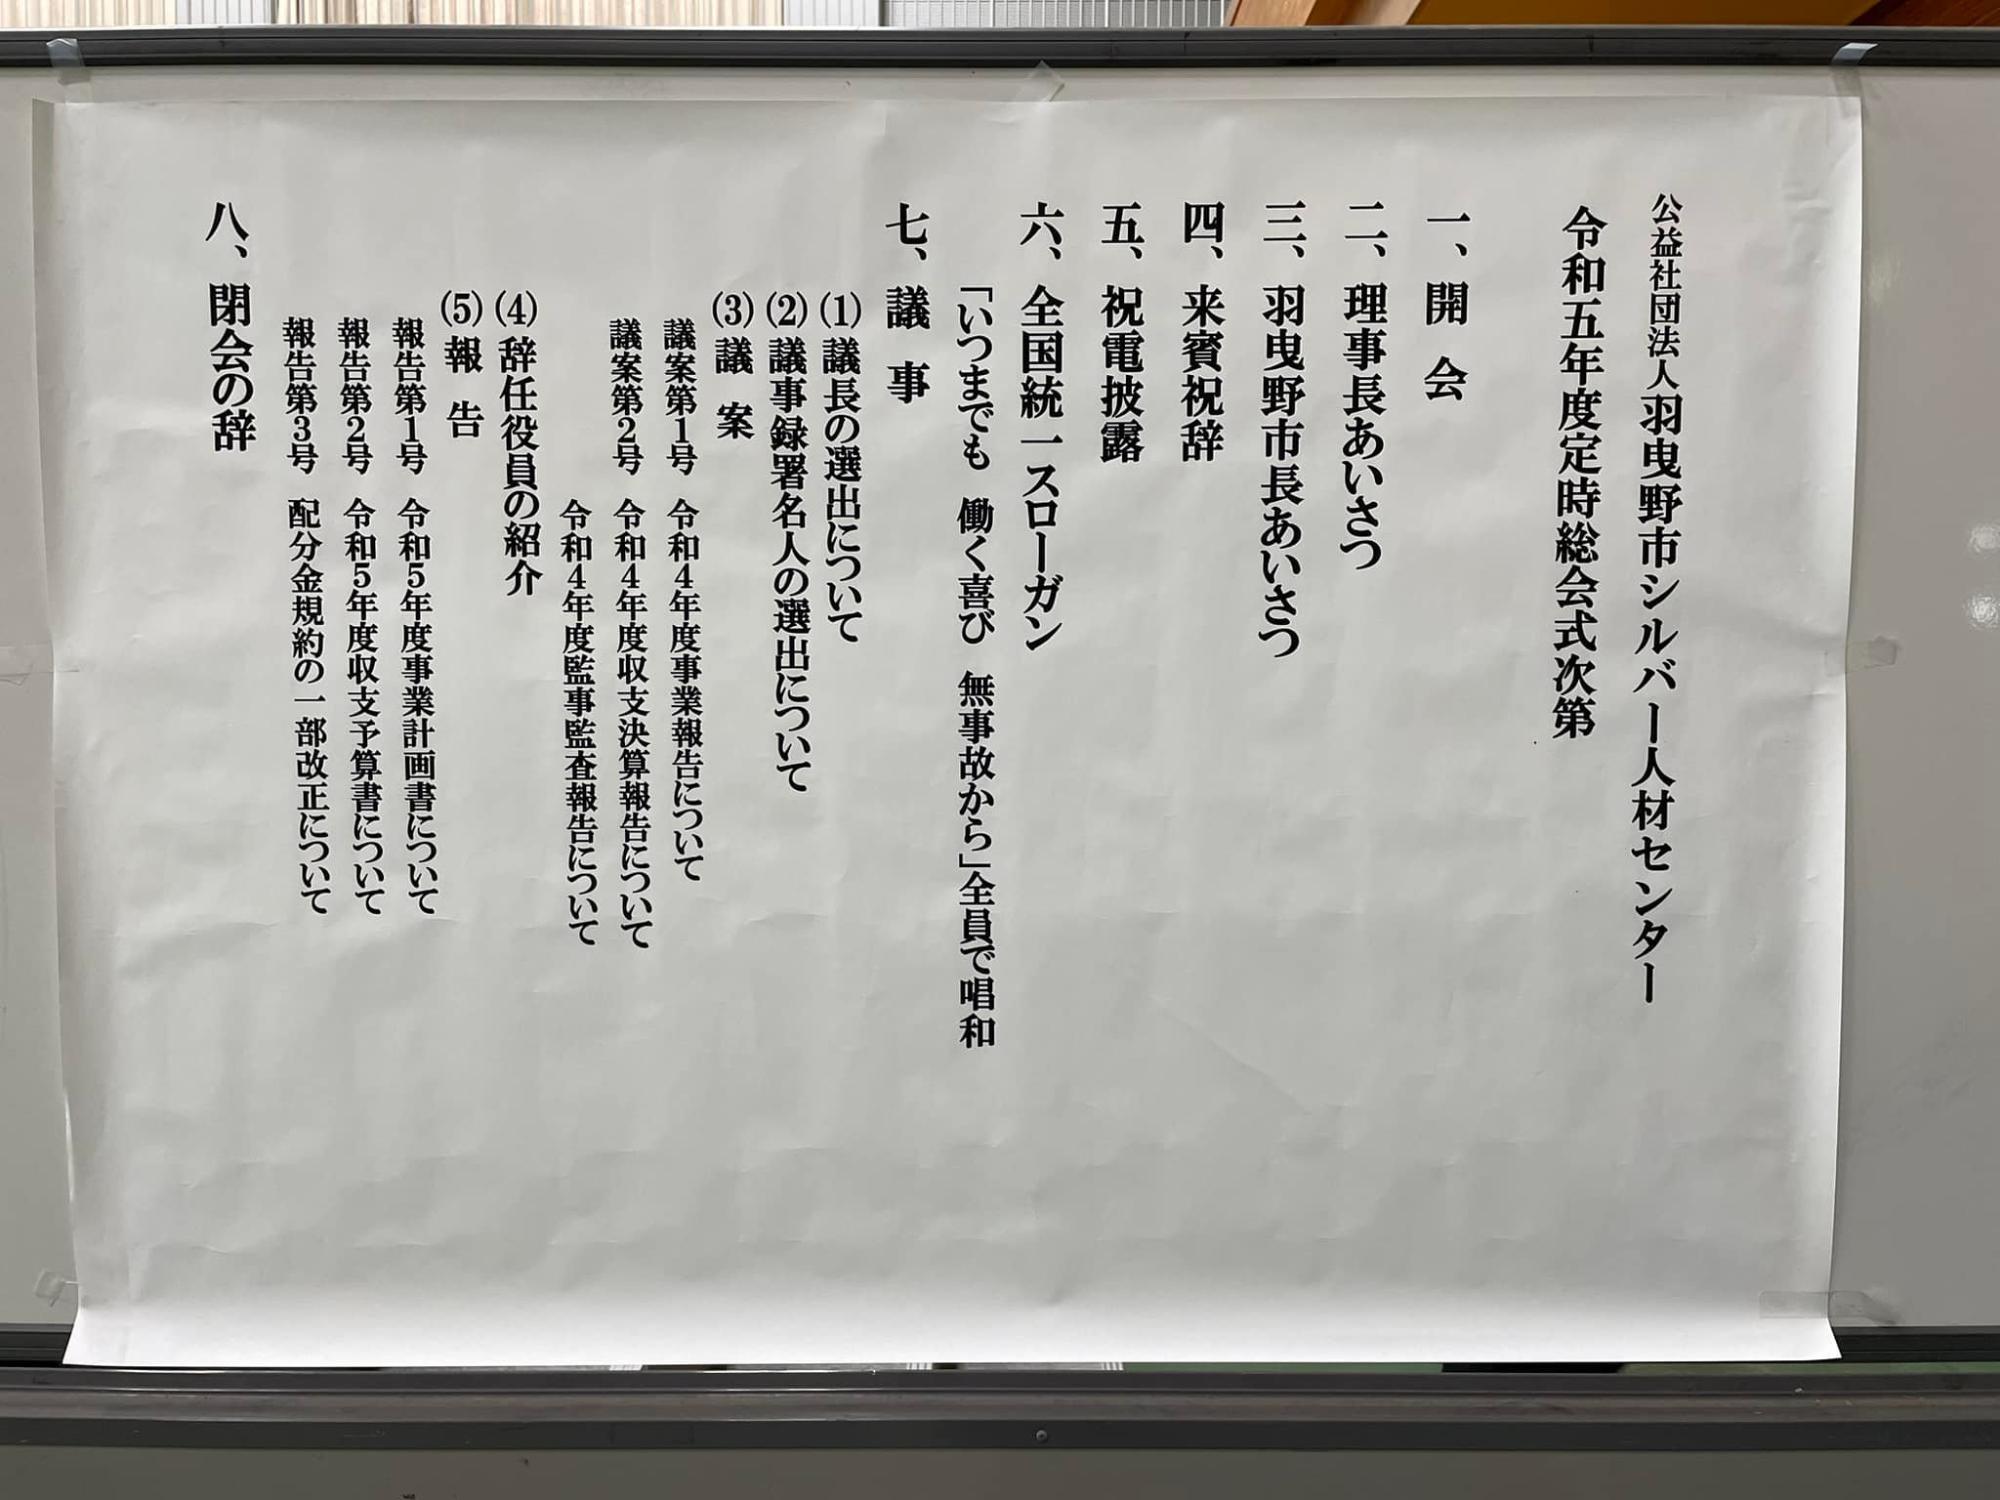 公益社団法人羽曳野市シルバー人材センター
令和五年度定時総会式次第
一、開会
二、理事長あいさつ
三、羽曳野市長あいさつ
四、来賓祝辞
五、祝電披露
六、全国統一スローガン
「いつまでも 働く喜び 無事故から」全員で唱和
七、議事
(1)議長の選出について
(2)議事録署名人の選出について
(3)議案
議案第1号 令和4年度事業報告について
議案第2号 令和4年度収支決算報告について
令和4年度監事監査報告について
(4)辞任役員の紹介
(5)報告
報告第1号 令和5年度事業計画書について
報告第2号 令和5年度収支予算書について
報告第3号 配分金規約の一部改正について
八、閉会の辞